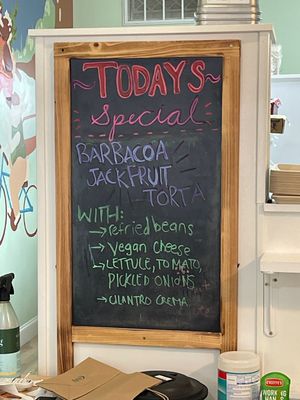 TODAYS
Special
BARBACOA
JACKFRUIT
TORTA
WITH:
→refried beans
→Vegan cheese
→LETTUCE, TOMATO,
PICKLED ONIONS
→CILANTRO CREMA
WORKING
HANDS